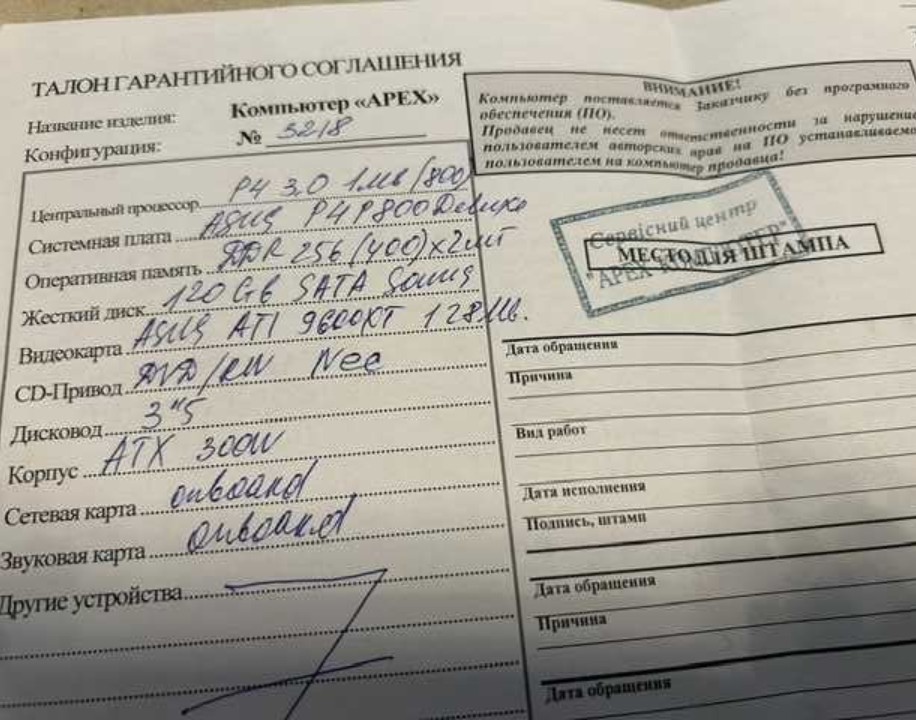 ТАЛОН ГАРАНТИЙНОГО СОГЛАШЕНИЯ
Название изделия: Компьютер «APEX»
Конфигурация: № 3218
Центральный процессор P4 3.0 1Mb (800)
Системная плата ASUS P4P800 Deluxe
Оперативная память DDR 256 (400)x2шт
Жесткий диск 120 Gb SATA Samsung
Видеокарта ASUS ATI 9600XT 128Mb.
CD-Привод DVD/RW Nec
Дисковод 3"5
Корпус ATX 300W
Сетевая карта onboard
Звуковая карта onboard
Другие устройства
ВНИМАНИЕ!
Компьютер поставляется Заказчику без програмного
обеспечения (ПО).
Продавец не несет ответственности за нарушение
пользователем авторских прав на ПО устанавливаемо
пользователем на компьютер продавца!
Сервісний центр
МЕСТО ДЛЯ ШТАМПА
"АРЕХ
Дата обращения
Причина
Вид работ
Дата исполнения
Подпись, штамп
Дата обращения
Причина
Дата обращения